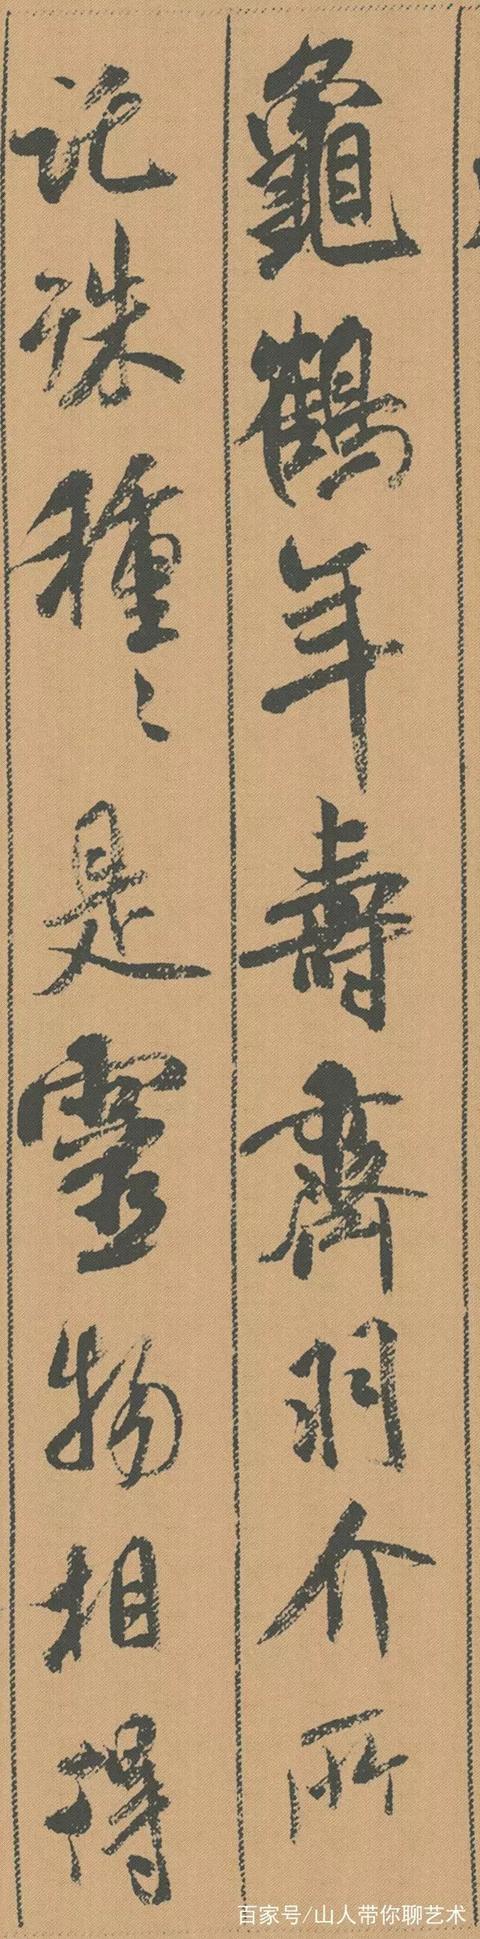 龜鶴年壽齊羽介所
託殊種〻是靈物相得
百家号/山人带你聊艺术